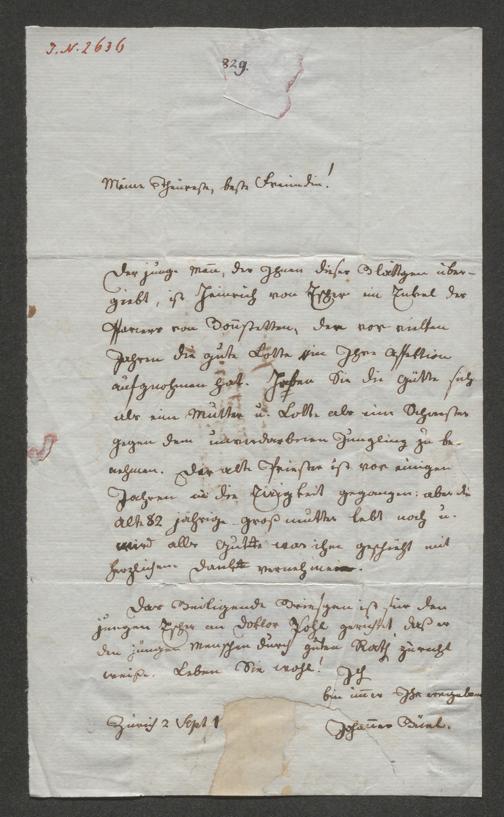 J. N. 2636
829.
Meine Theureste, beste Freundin!
Der junge Mann, der Ihnen dieses Blättgen über-
giebt, ist Heinrich von Escher ein Enkel des
Pfarrers von Bonstetten, der vor vielen
Jahren die gute Lotte in Ihre Affektion
aufgnohmen hat. Haben Sie die Güte sich
als eine Mutter u. Lotte als eine Schwester
gegen dem unverdorbenen Jüngling zu be-
nehmen. Der alte Priester ist vor einigen
Jahren in die Ewigkeit gegangen: aber die
alte 82 jährige Großmutter lebt noch u.
wird alles Gute was ihm geschieht mit
herzlichem Dank vernehmen.
Das Beiligende Briefgen ist für den
jungen Escher an Doktor Pohl gerichtet, daß er
den jungen Menschen durch guten Rath zurecht
weise. Leben Sie wohl! Ich
bin immer Ihr
Zürich 2 Sept 1
Johannes Büel.